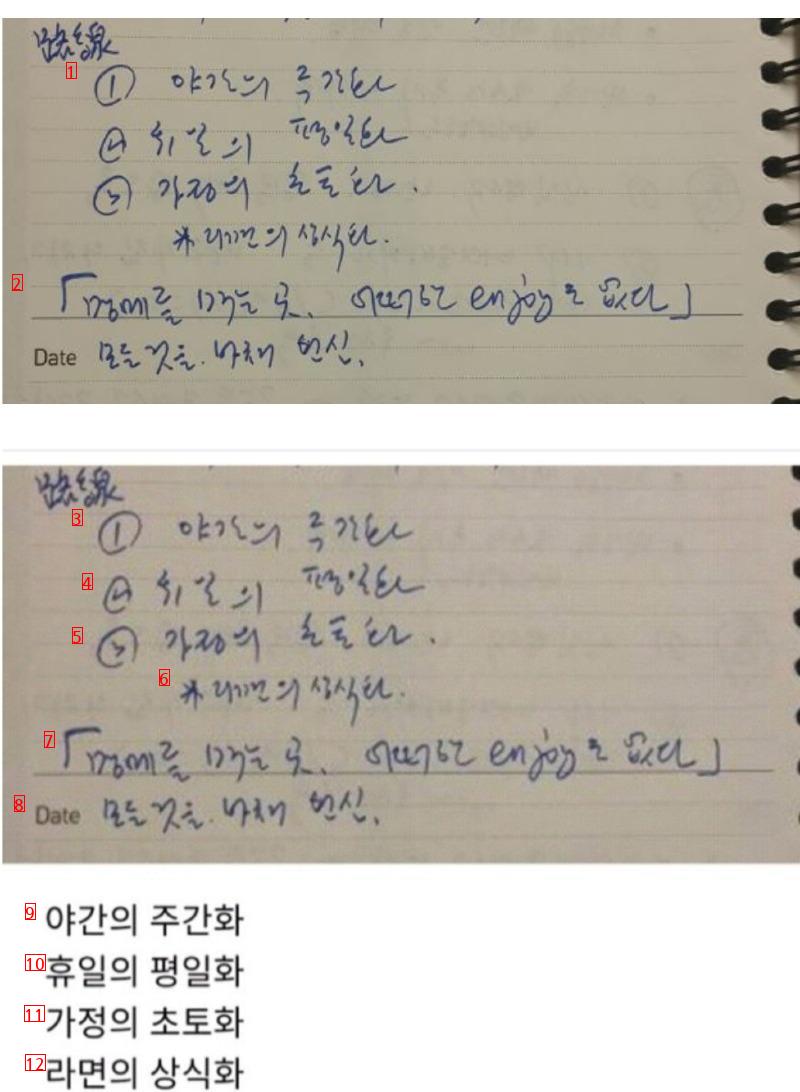 路線
1 ① 야간의 주간화
② 휴일의 평일화
③ 가정의 초토화.
* 라면의 상식화.
2 「명예를 먹는 곳. 어떠한 enjoy도 없다」
Date 모든 것을 바쳐 헌신.
路線
3 ① 야간의 주간화
4 ② 휴일의 평일화
5 ③ 가정의 초토화.
6 * 라면의 상식화.
7 「명예를 먹는 곳. 어떠한 enjoy도 없다」
8 Date 모든 것을 바쳐 헌신.
9 야간의 주간화
10 휴일의 평일화
11 가정의 초토화
12 라면의 상식화